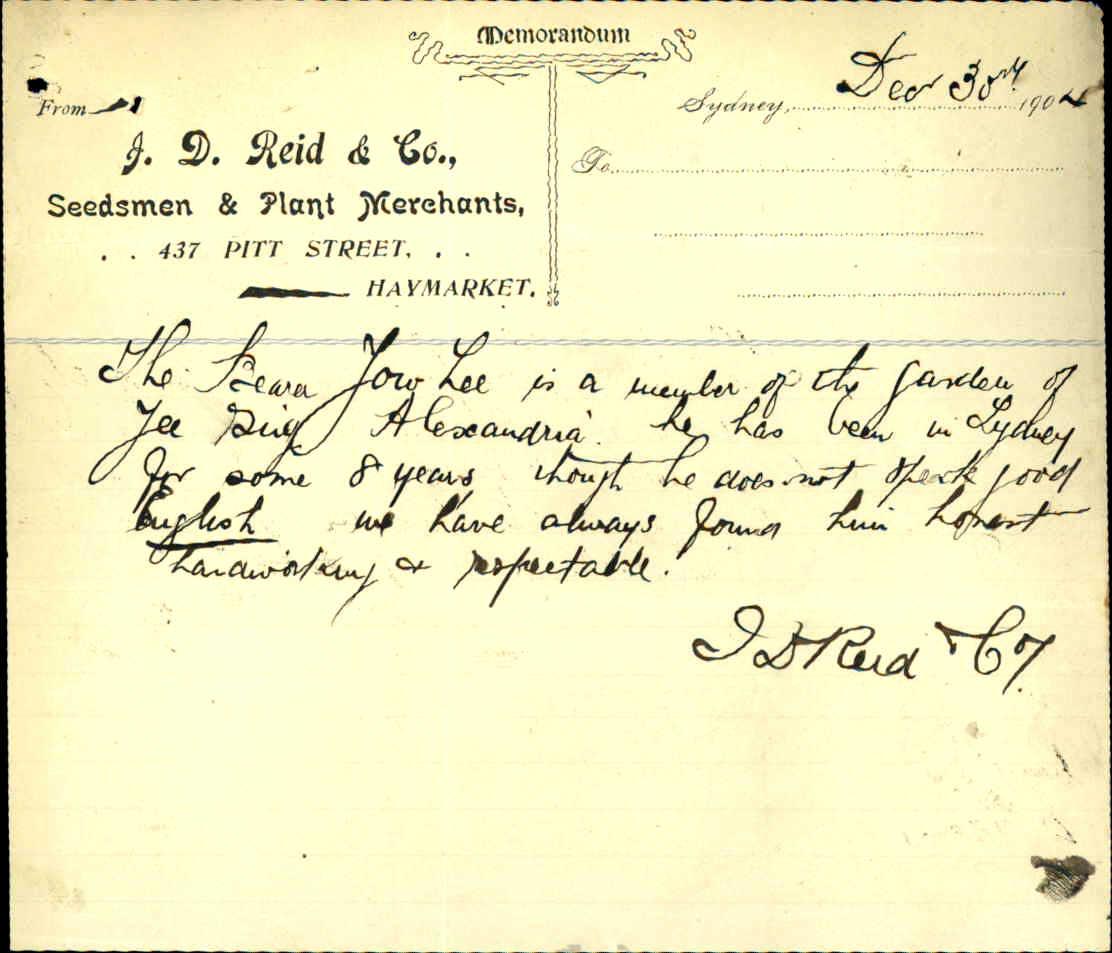 Memorandum
From
Sydney, Decr 30th 1904
J. D. Reid & Co.,
To
Seedsmen & Plant Merchants,
. . 437 PITT STREET, . .
HAYMARKET.
The Bearer Jow Lee is a member of the garden of
Yee Sing Alexandria. he has been in Sydney
for some 8 years though he does not speak good
English we have always found him honest
hardworking & respectable.
J D Reid & Co